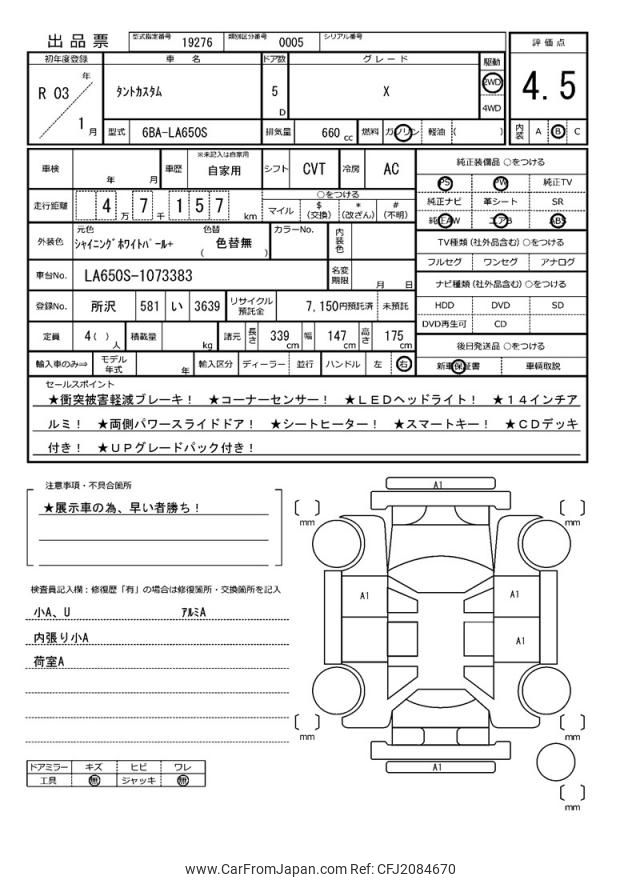 出品票 型式指定番号 19276 類別区分番号 0005 シリアル番号
初年度登録 車名 ドア数 グレード 駆動 評価点
R 03 年 1 月 タントカスタム 5 D X 2WD 4WD 4.5
型式 6BA-LA650S 排気量 660 cc 燃料 ガソリン 軽油 ( ) 内装 A B C
車検 年 月 車歴 ※未記入は自家用 自家用 シフト CVT 冷房 AC
走行距離 4 7 1 5 7 万 千 km ○をつける
マイル $ (交換) * (改ざん) # (不明)
外装色 元色 シャイニングホワイトパール+ 色替 ( 色替無 ) カラーNo. 内装色
車台No. LA650S-1073383 名変期限 月 日
登録No. 所沢 581 い 3639 リサイクル預託金 7,150円預託済 未預託
定員 4( ) 人 積載量 kg 諸元 長さ 339 cm 幅 147 cm 高さ 175 cm
輸入車のみ⇒ モデル年式 年 輸入区分 ディーラー 並行 ハンドル 左 右
純正装備品 ○をつける
PS PW 純正TV
純正ナビ 革シート SR
純正AW エアB ABS
TV種類 (社外品含む) ○をつける
フルセグ ワンセグ アナログ
ナビ種類 (社外品含む) ○をつける
HDD DVD SD
DVD再生可 CD
後日発送品 ○をつける
新車保証書 車輌取説
セールスポイント
★衝突被害軽減ブレーキ! ★コーナーセンサー! ★LEDヘッドライト! ★14インチア
ルミ! ★両側パワースライドドア! ★シートヒーター! ★スマートキー! ★CDデッキ
付き! ★UPグレードパック付き!
注意事項・不具合箇所
★展示車の為、早い者勝ち!
検査員記入欄：修復歴「有」の場合は修復箇所・交換箇所を記入
小A、U アルミA
内張り小A
荷室A
ドアミラー キズ ヒビ ワレ
工具 無 ジャッキ 無
A1
[ ] mm [ ] mm
A1 A1
A1
[ ] mm [ ] mm
A1
[ ] mm
www.CarFromJapan.com Ref: CFJ2084670